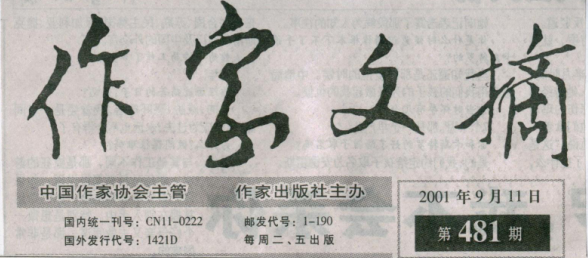 作家文摘
中国作家协会主管 作家出版社主办
国内统一刊号：CN11-0222 邮发代号：1-190
国外发行代号：1421D 每周二、五出版
2001年9月11日
第481期